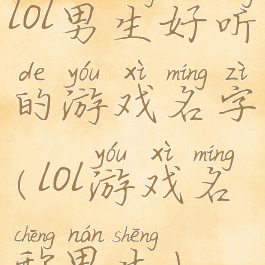 lol男生好听
de yóu xì míng zì
的游戏名字
yóu xì míng
(lol游戏名
chēng nán shēng
称男生)